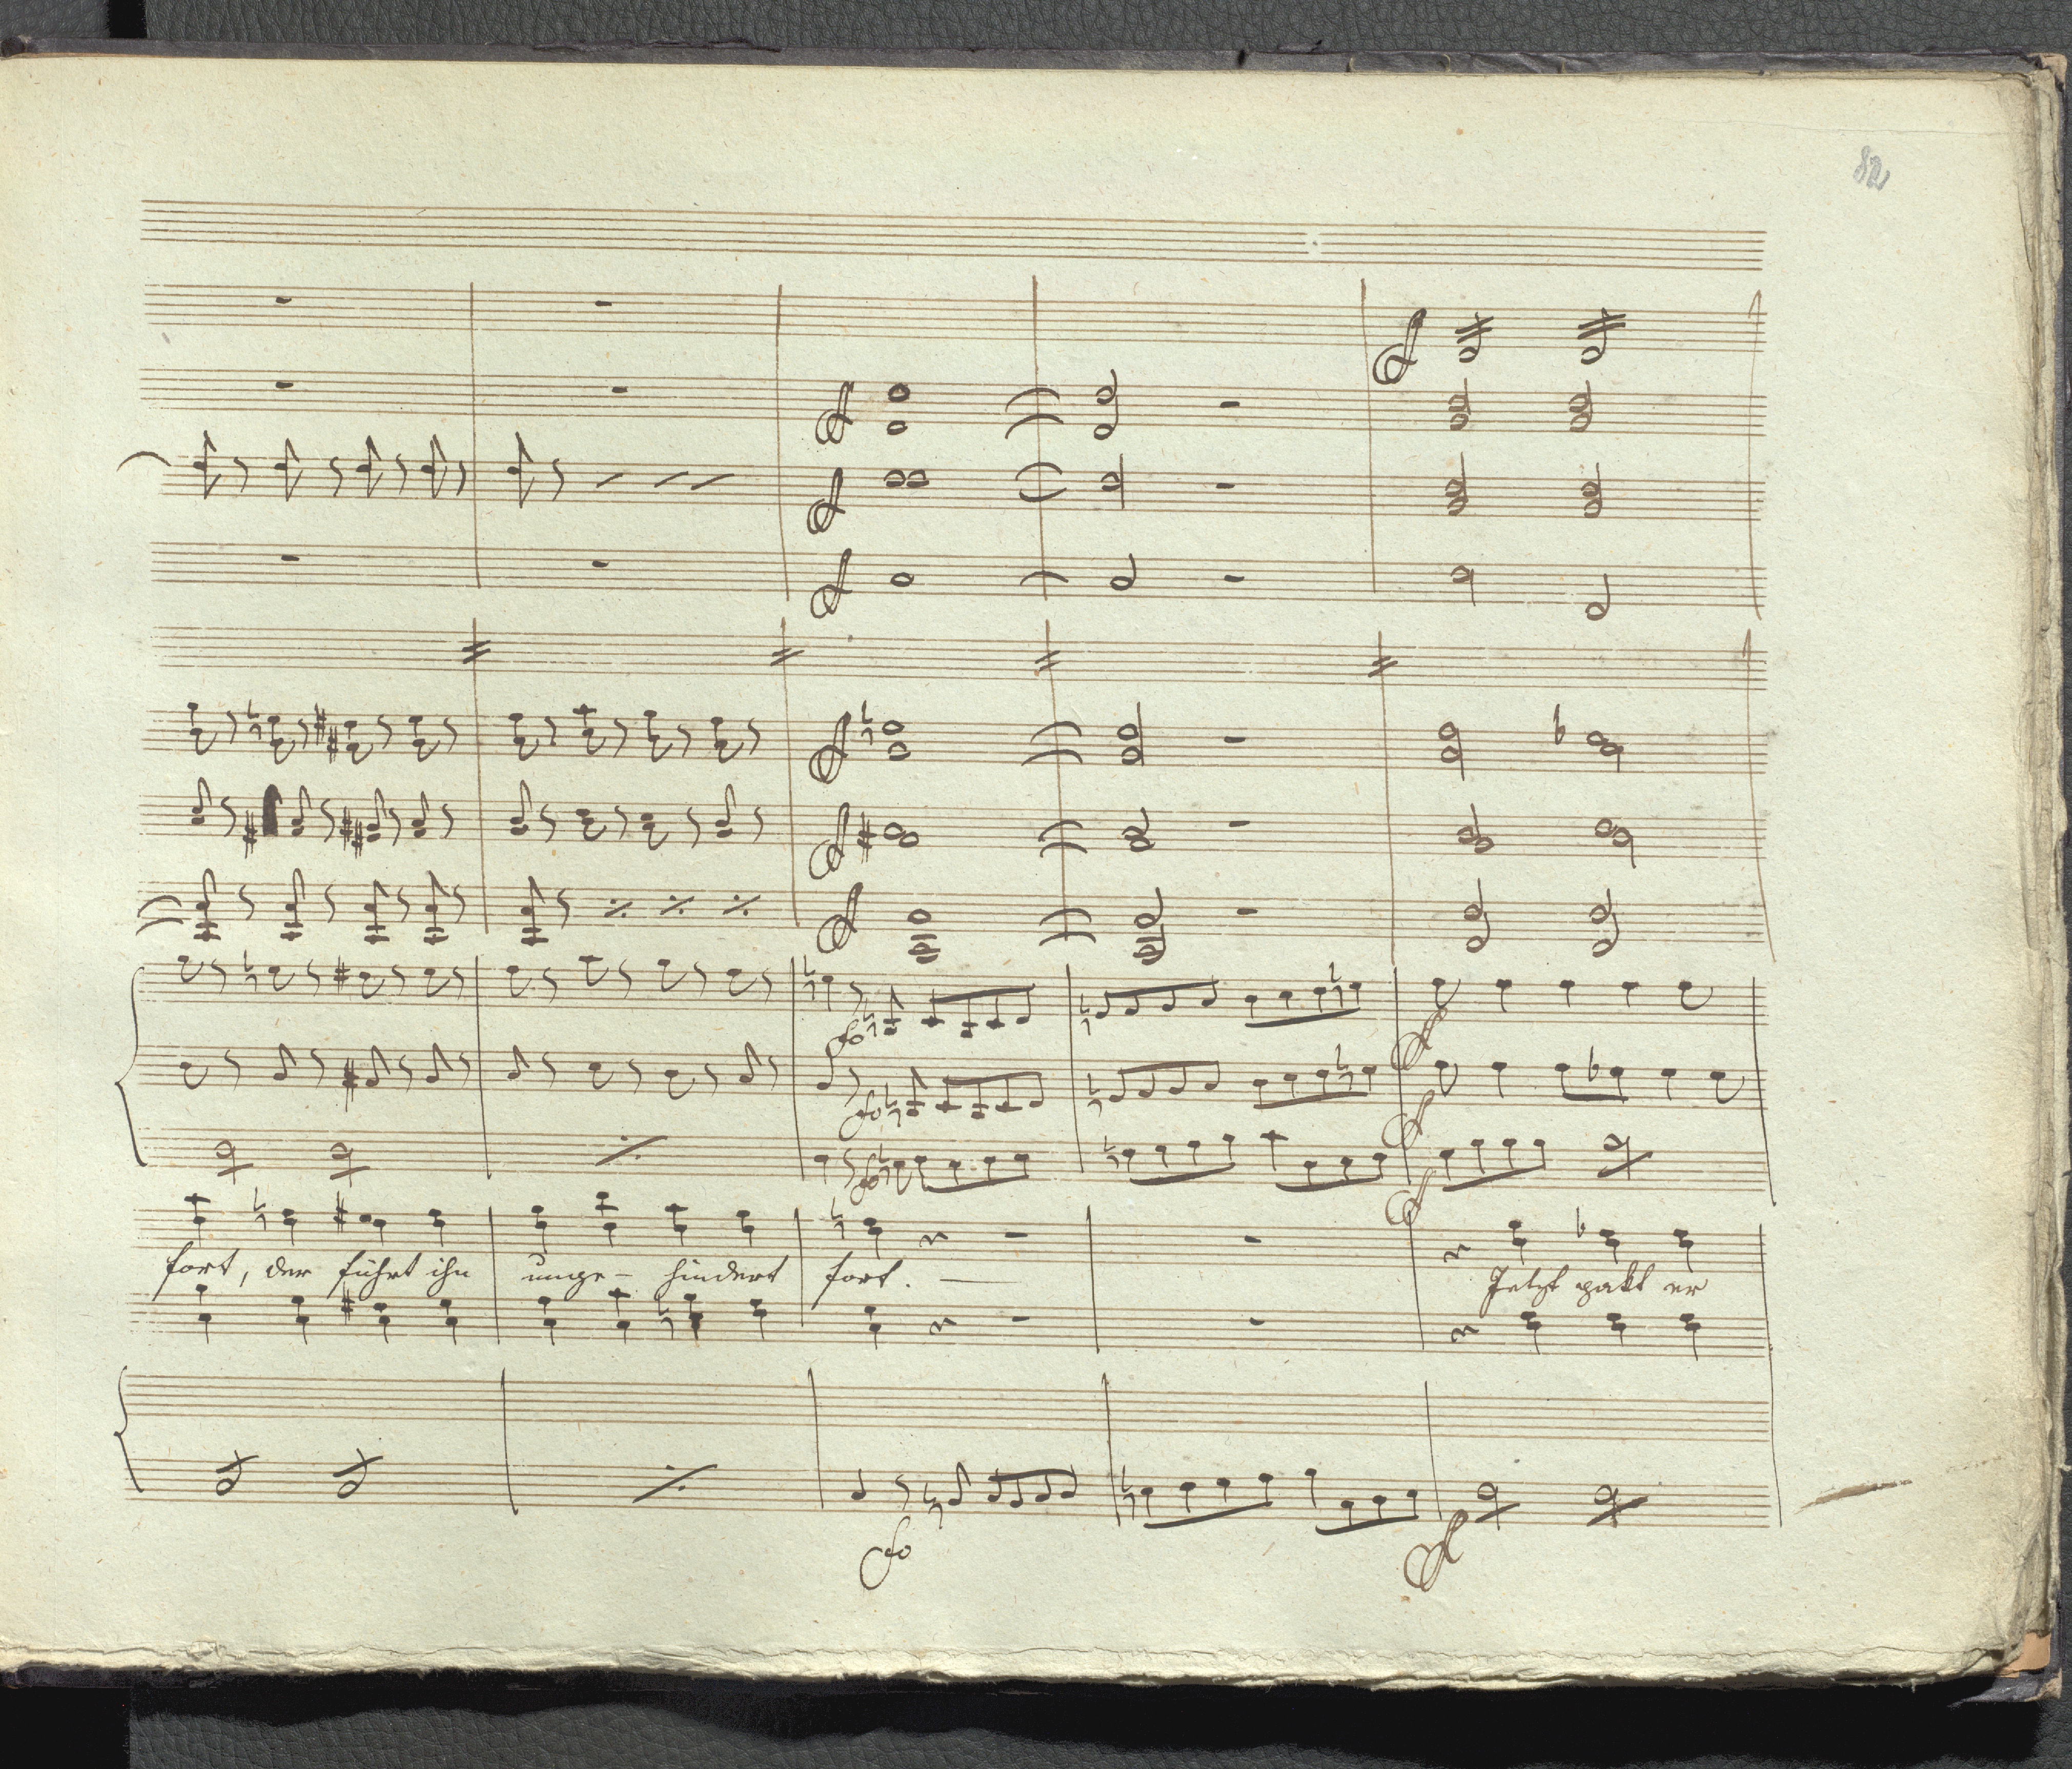 82
fort, der führt ihn unge- hindert fort. — Jetzt pakt er